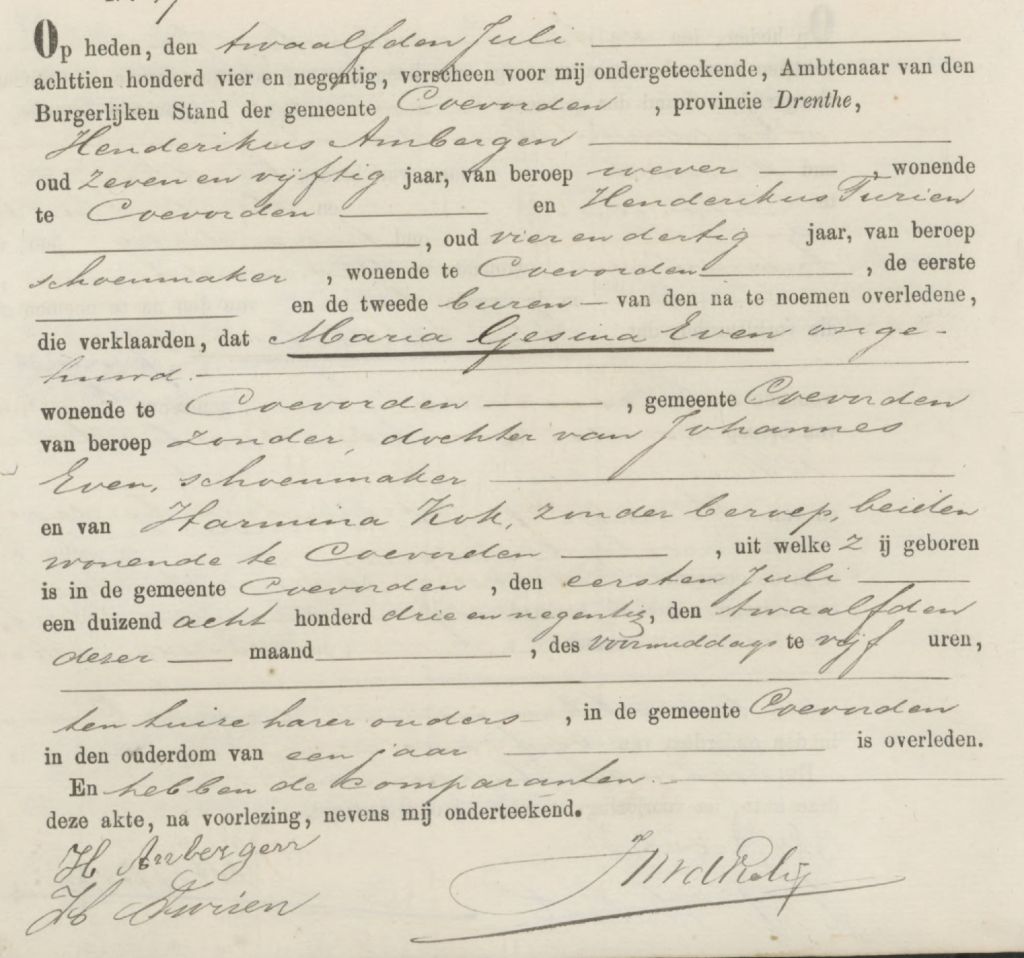 Op heden, den twaalfden Juli
achttien honderd vier en negentig, verscheen voor mij ondergeteekende, Ambtenaar van den
Burgerlijken Stand der gemeente Coevorden, provincie Drenthe,
Henderikus Ambergen
oud zeven en vijftig jaar, van beroep wever, wonende
te Coevorden en Henderikus Turien
, oud vier en dertig jaar, van beroep
schoenmaker, wonende te Coevorden, de eerste
en de tweede buren van den na te noemen overledene,
die verklaarden, dat Maria Gesina Even onge-
huwd.
wonende te Coevorden, gemeente Coevorden
van beroep zonder, dochter van Johannes
Even, schoenmaker
en van Harmina Kok, zonder beroep, beiden
wonende te Coevorden, uit welke zij geboren
is in de gemeente Coevorden, den eersten Juli
een duizend acht honderd drie en negentig, den twaalfden
dezer maand, des voormiddags te vijf uren,
ten huize harer ouders, in de gemeente Coevorden
in den ouderdom van een jaar is overleden.
En hebben de comparanten
deze akte, na voorlezing, nevens mij onderteekend.
H Ambergen
H Turien